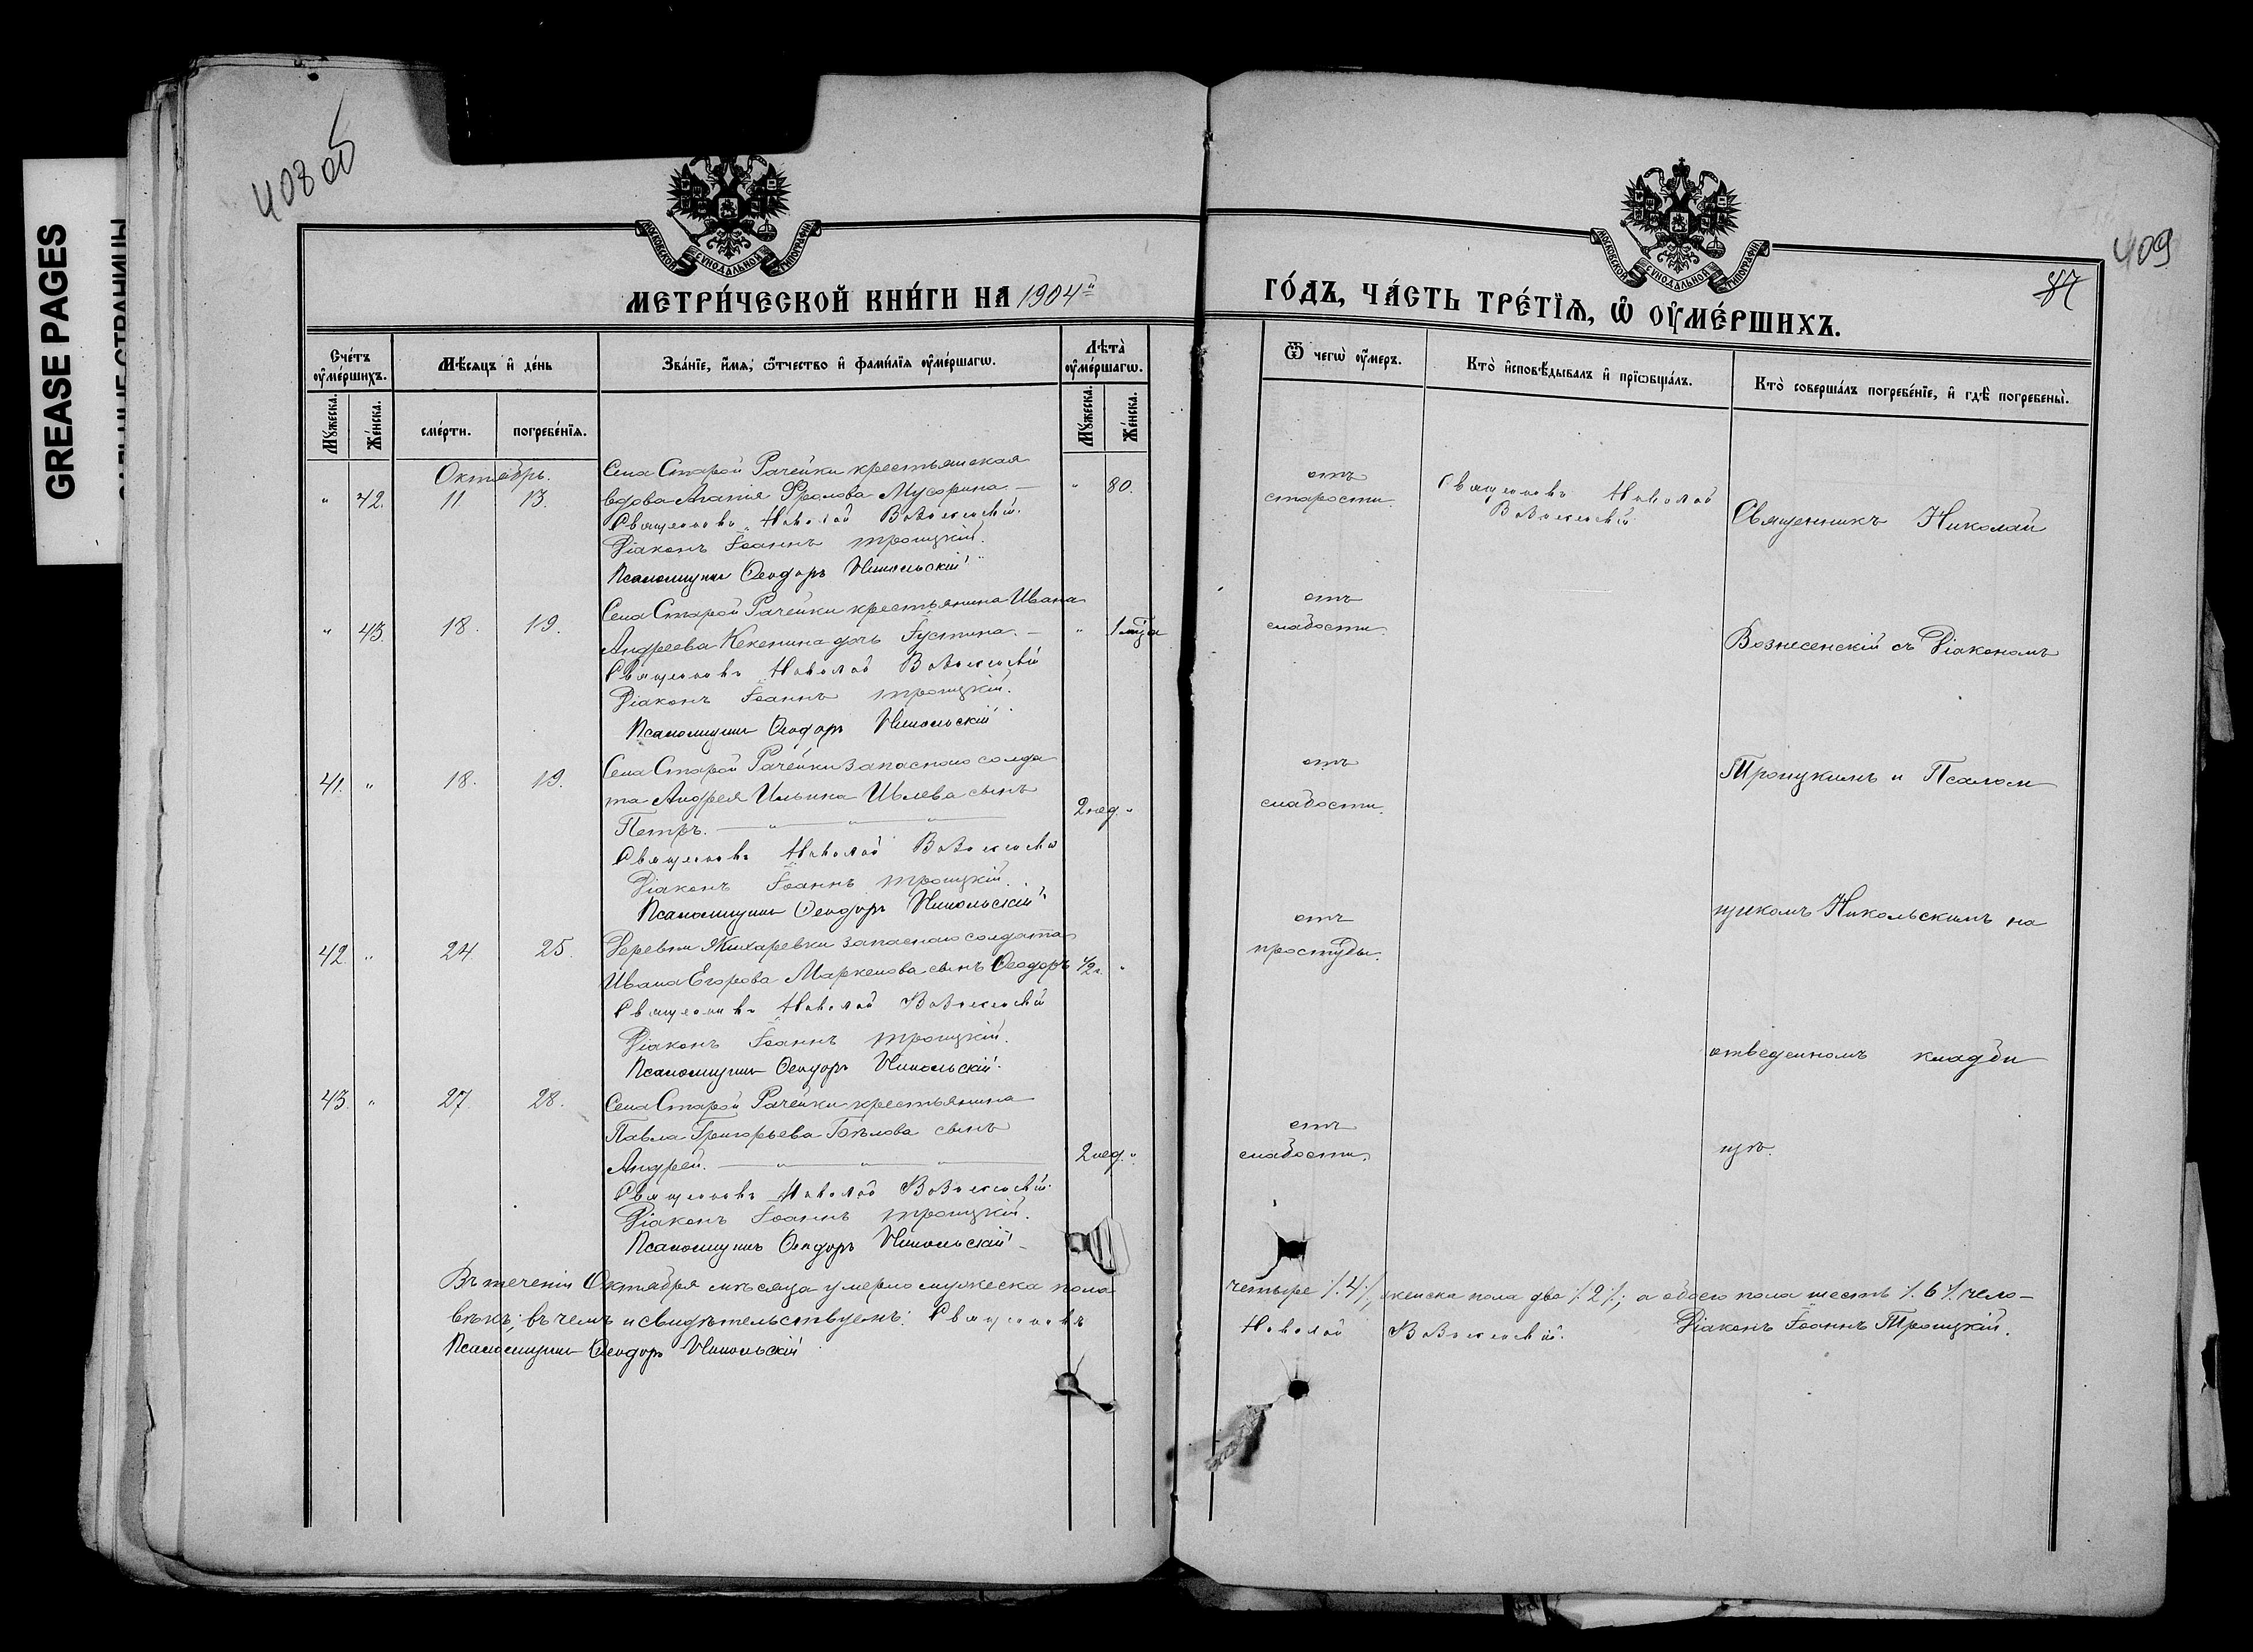 408 об
409
87
GREASE PAGES
МОСКОВСКОЙ СУНОДАЛЬНОЙ ТИПОГРАФІИ
МОСКОВСКОЙ СУНОДАЛЬНОЙ ТИПОГРАФІИ
МЕТРИ́ЧЕСКОЙ КНИ́ГИ НА 1904й
ГО́ДЪ, ЧА́СТЬ ТРЕ́ТЇѦ, Ѡ҆ ОУ҆МЕ́РШИХЪ.
Сче́тъ оу҆ме́ршихъ.
Мѣ́сяцъ и҆ де́нь
Зва́нїе, и҆́мѧ, ѻ҆́тчество и҆ фами́лїѧ оу҆ме́ршагѡ.
Лѣта̀ оу҆ме́ршагѡ.
Ѿ чегѡ̀ оу҆́меръ.
Кто̀ и҆сповѣ́дывалъ и҆ прїѡбща́лъ.
Кто̀ соверша́лъ погребе́нїе, и҆ гдѣ̀ погребены̀.
Мꙋ́жеска.
Же́нска.
сме́рти.
погребе́нїѧ.
Мꙋ́жеска.
Же́нска.
Октябрь.
Села Старой Рачейки крестьянская
" 42. 11 13. вдова Агапія Фролова Мусорина — " 80.
Священникъ Николай Вознесенскій.
Діаконъ Іоаннъ Троицкій.
Псаломщикъ Ѳеодоръ Никольскій
отъ
старости.
Священникъ Николай
Вознесенскій
Священникъ Николай
Села Старой Рачейки крестьянина Ивана
" 43. 18. 19. Андреева Кекенина дочь Іустина. — " 1 мѣса
Священникъ Николай Вознесенскій
Діаконъ Іоаннъ Троицкій.
Псаломщикъ Ѳеодоръ Никольскій
отъ
слабости.
Вознесенскій съ Діакономъ
Села Старой Рачейки запаснаго солда
41. " 18. 19. та Андрея Ильина Ивлева сынъ
Петръ. — " — " — " — 2 нед. "
Священникъ Николай Вознесенскій
Діаконъ Іоаннъ Троицкій.
Псаломщикъ Ѳеодоръ Никольскій
отъ
слабости.
Троицкимъ и Псалом
Деревни Жихаревки запаснаго солдата
42. " 24 25. Ивана Егорова Маркелова сынъ Ѳеодоръ 1/2 г. "
Священникъ Николай Вознесенскій
Діаконъ Іоаннъ Троицкій.
Псаломщикъ Ѳеодоръ Никольскій.
отъ
простуды.
щикомъ Никольскимъ на
отведенномъ кладби
43. " 27 28. Села Старой Рачейки крестьянина
Павла Григорьева Бѣлова сынъ
Андрей. — " — " — " — 2 нед. "
Священникъ Николай Вознесенскій.
Діаконъ Іоаннъ Троицкій.
Псаломщикъ Ѳеодоръ Никольскій
отъ
слабости.
щѣ.
Въ теченіи Октября мѣсяца умерло мужеска пола четыре /. 4 /, женска пола два /. 2 /.; а обоего пола шесть /. 6 /. чело-
вѣкъ; въ чемъ и свидѣтельствуемъ: Священникъ Николай Вознесенскій. Діаконъ Іоаннъ Троицкій.
Псаломщикъ Ѳеодоръ Никольскій